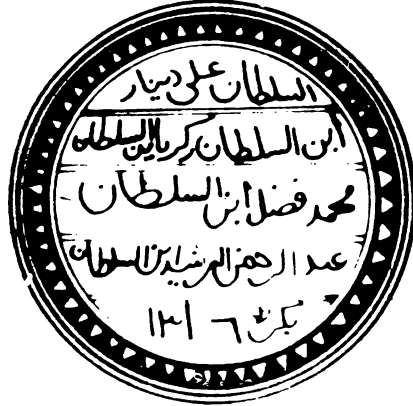 السلطان علي دينار
ابن السلطان زكريا ابن السلطان
محمد فضل ابن السلطان
عبد الرحمن الرشيد ابن السلطان
بكر ١٣١٦